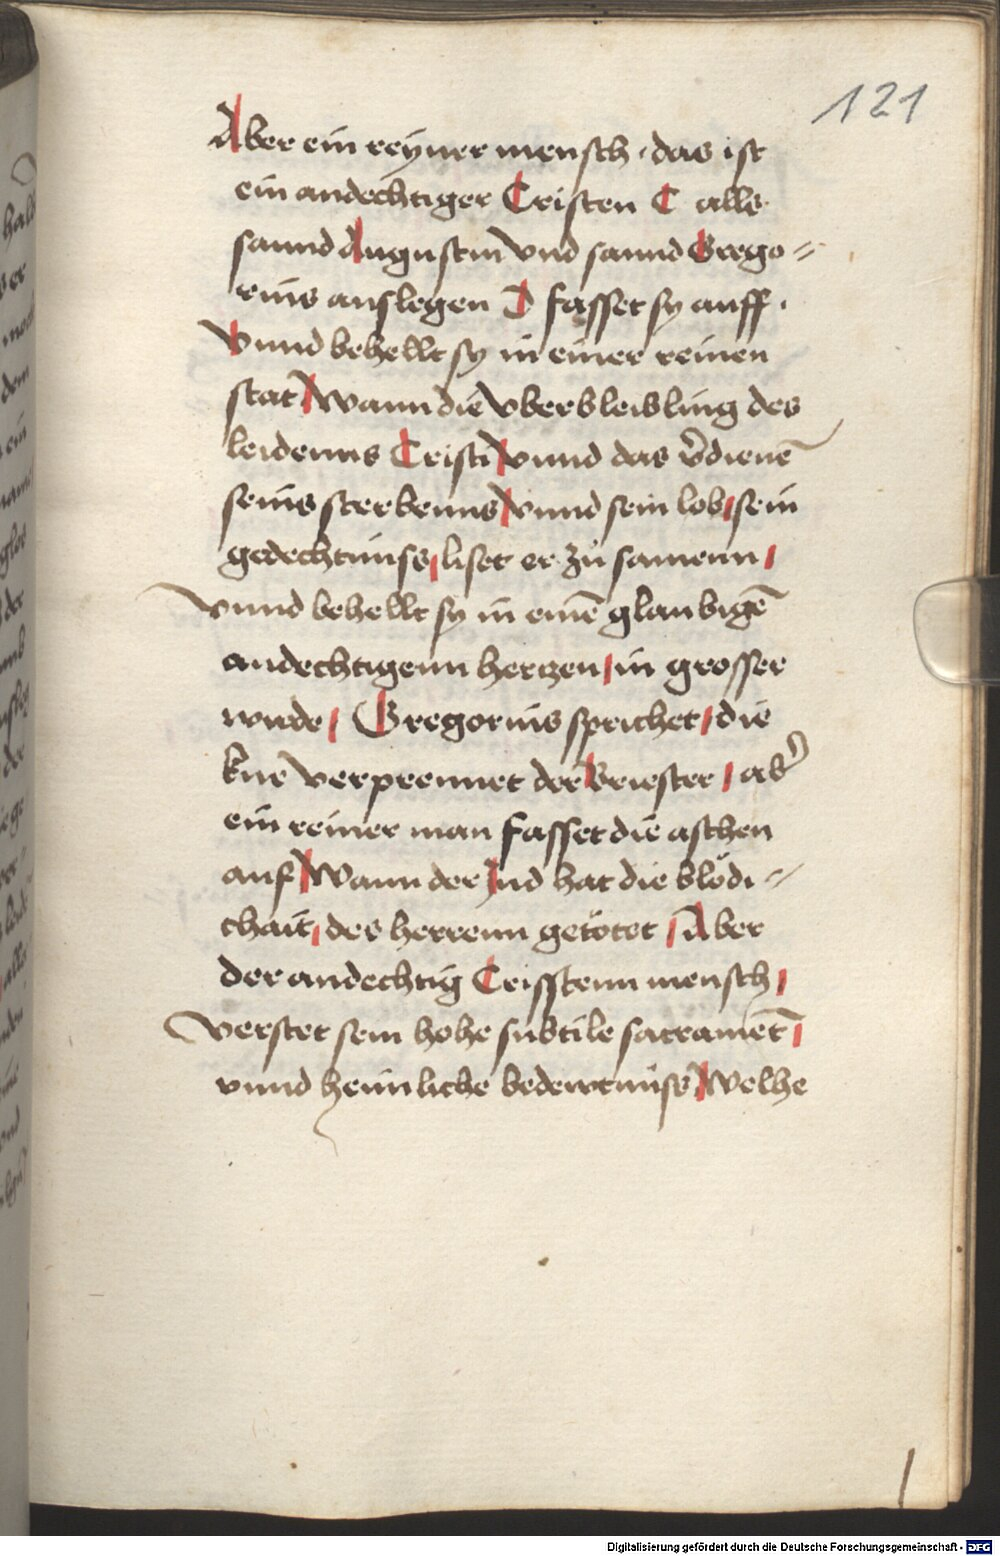 121
Aber ein reyner mensch · das ist
ein andechtiger Cristen C alls
sannd Augustin vnd sannd Grego⸗
rius auslegen Ↄ fasset sy auff ·
Vnnd behellt sy in einer reinen
stat / Wann die vberbleibling des
leidenns Cristi / vnnd das v̉dienē
seins sterbenns / vnnd sein lob / sein
gedechtnuss / liset er zu samenn /
vnnd behellt sy in einē glaubigē
andechtigenn hertzen / in grosser
wirde / Gregorius sprichet / die
kue verprennet der Briester / ab̉
ein reiner man fasset die aschen
auf / Wann der Iud hat die blödi⸗
chait / des herrenn getötet / Aber
der andechtig Crisstenn mensch /
verstet sein hohe subtile sacramēt /
vnnd heimliche bedewtnuss / Welhe
Digitalisierung gefördert durch die Deutsche Forschungsgemeinschaft - DFG